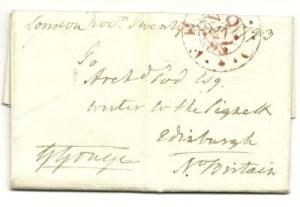 London Novr. Twenty
To
Archd Tod Esq.
writer to the Signett
Edinburgh
No. Britain